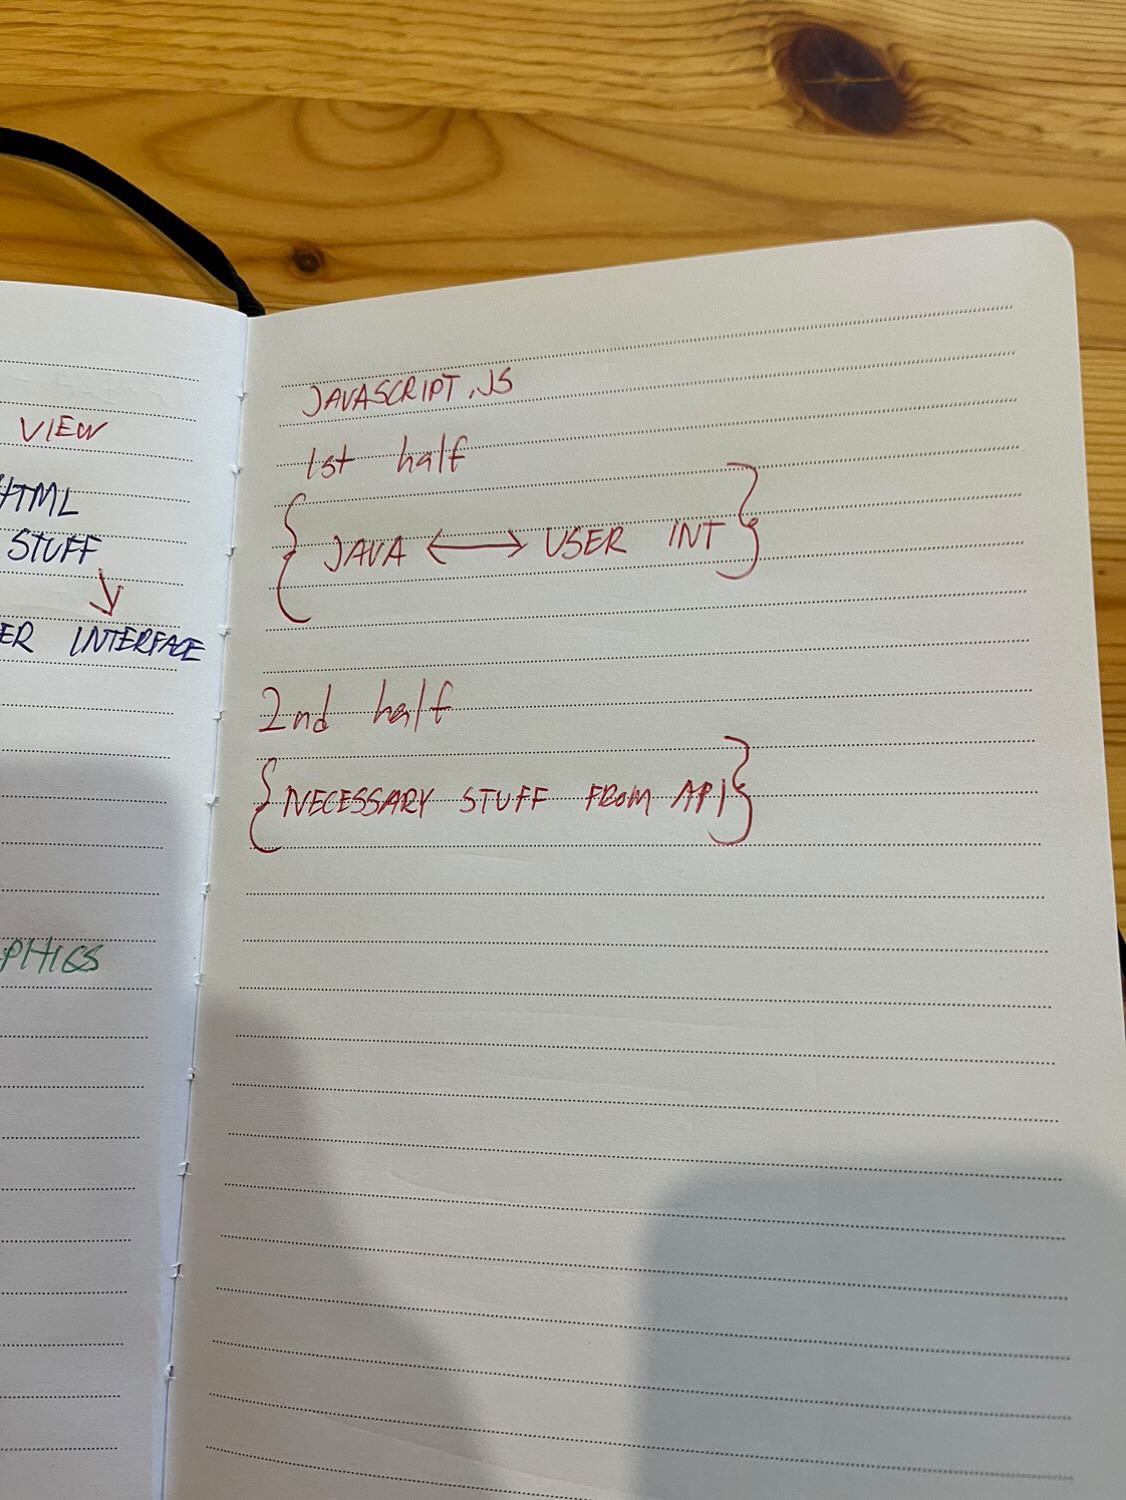 VIEW
HTML
STUFF
INTERFACE
JAVASCRIPT.JS
1st half
{ JAVA ⟷ USER INT }
2nd half
{ NECESSARY STUFF FROM API }